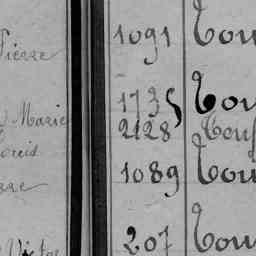 1091 Tou
Pierre
1735 Tou
Marie
2128 Touf
Louis
1089 Tou
rre
207 Tou
Victor